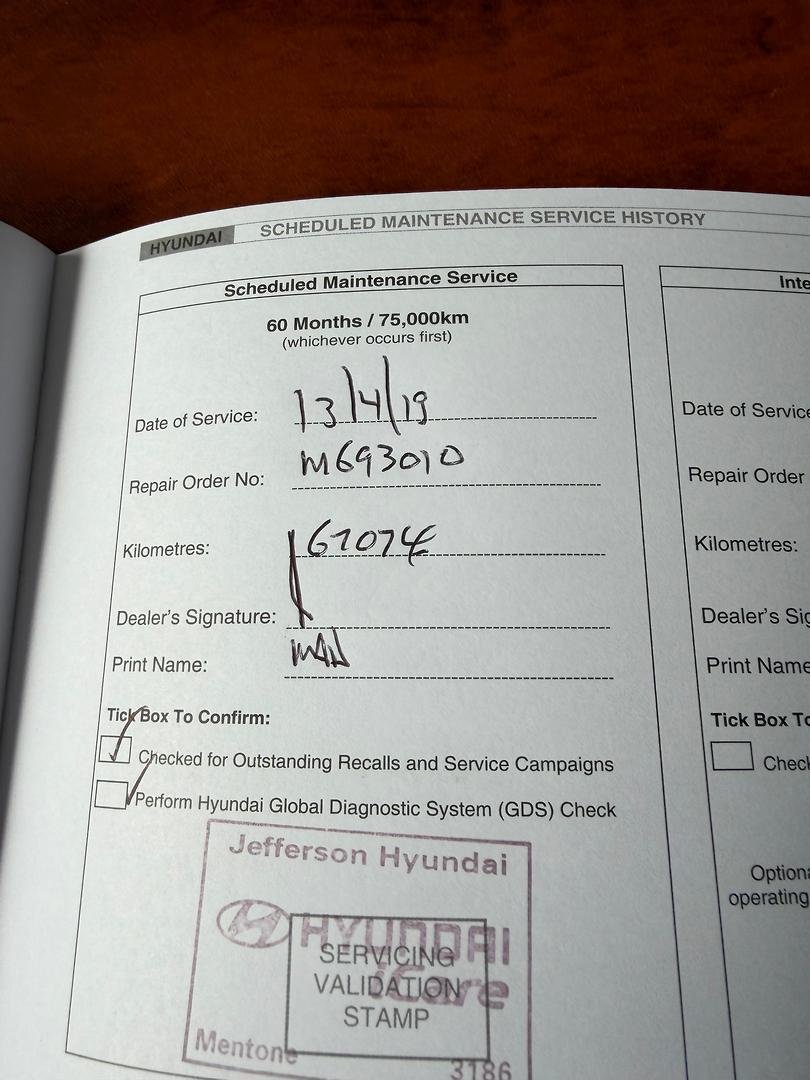 HYUNDAI SCHEDULED MAINTENANCE SERVICE HISTORY
Scheduled Maintenance Service
60 Months / 75,000km
(whichever occurs first)
Date of Service: 13/4/19
Repair Order No: M693010
Kilometres: 67074
Dealer's Signature:
Print Name:
Tick Box To Confirm:
Checked for Outstanding Recalls and Service Campaigns
Perform Hyundai Global Diagnostic System (GDS) Check
Jefferson Hyundai
HYUNDAI
iCare
SERVICING
VALIDATION
STAMP
Mentone 3186
Inte
Date of Service
Repair Order
Kilometres:
Dealer's Sig
Print Name
Tick Box To
Check
Optiona
operating